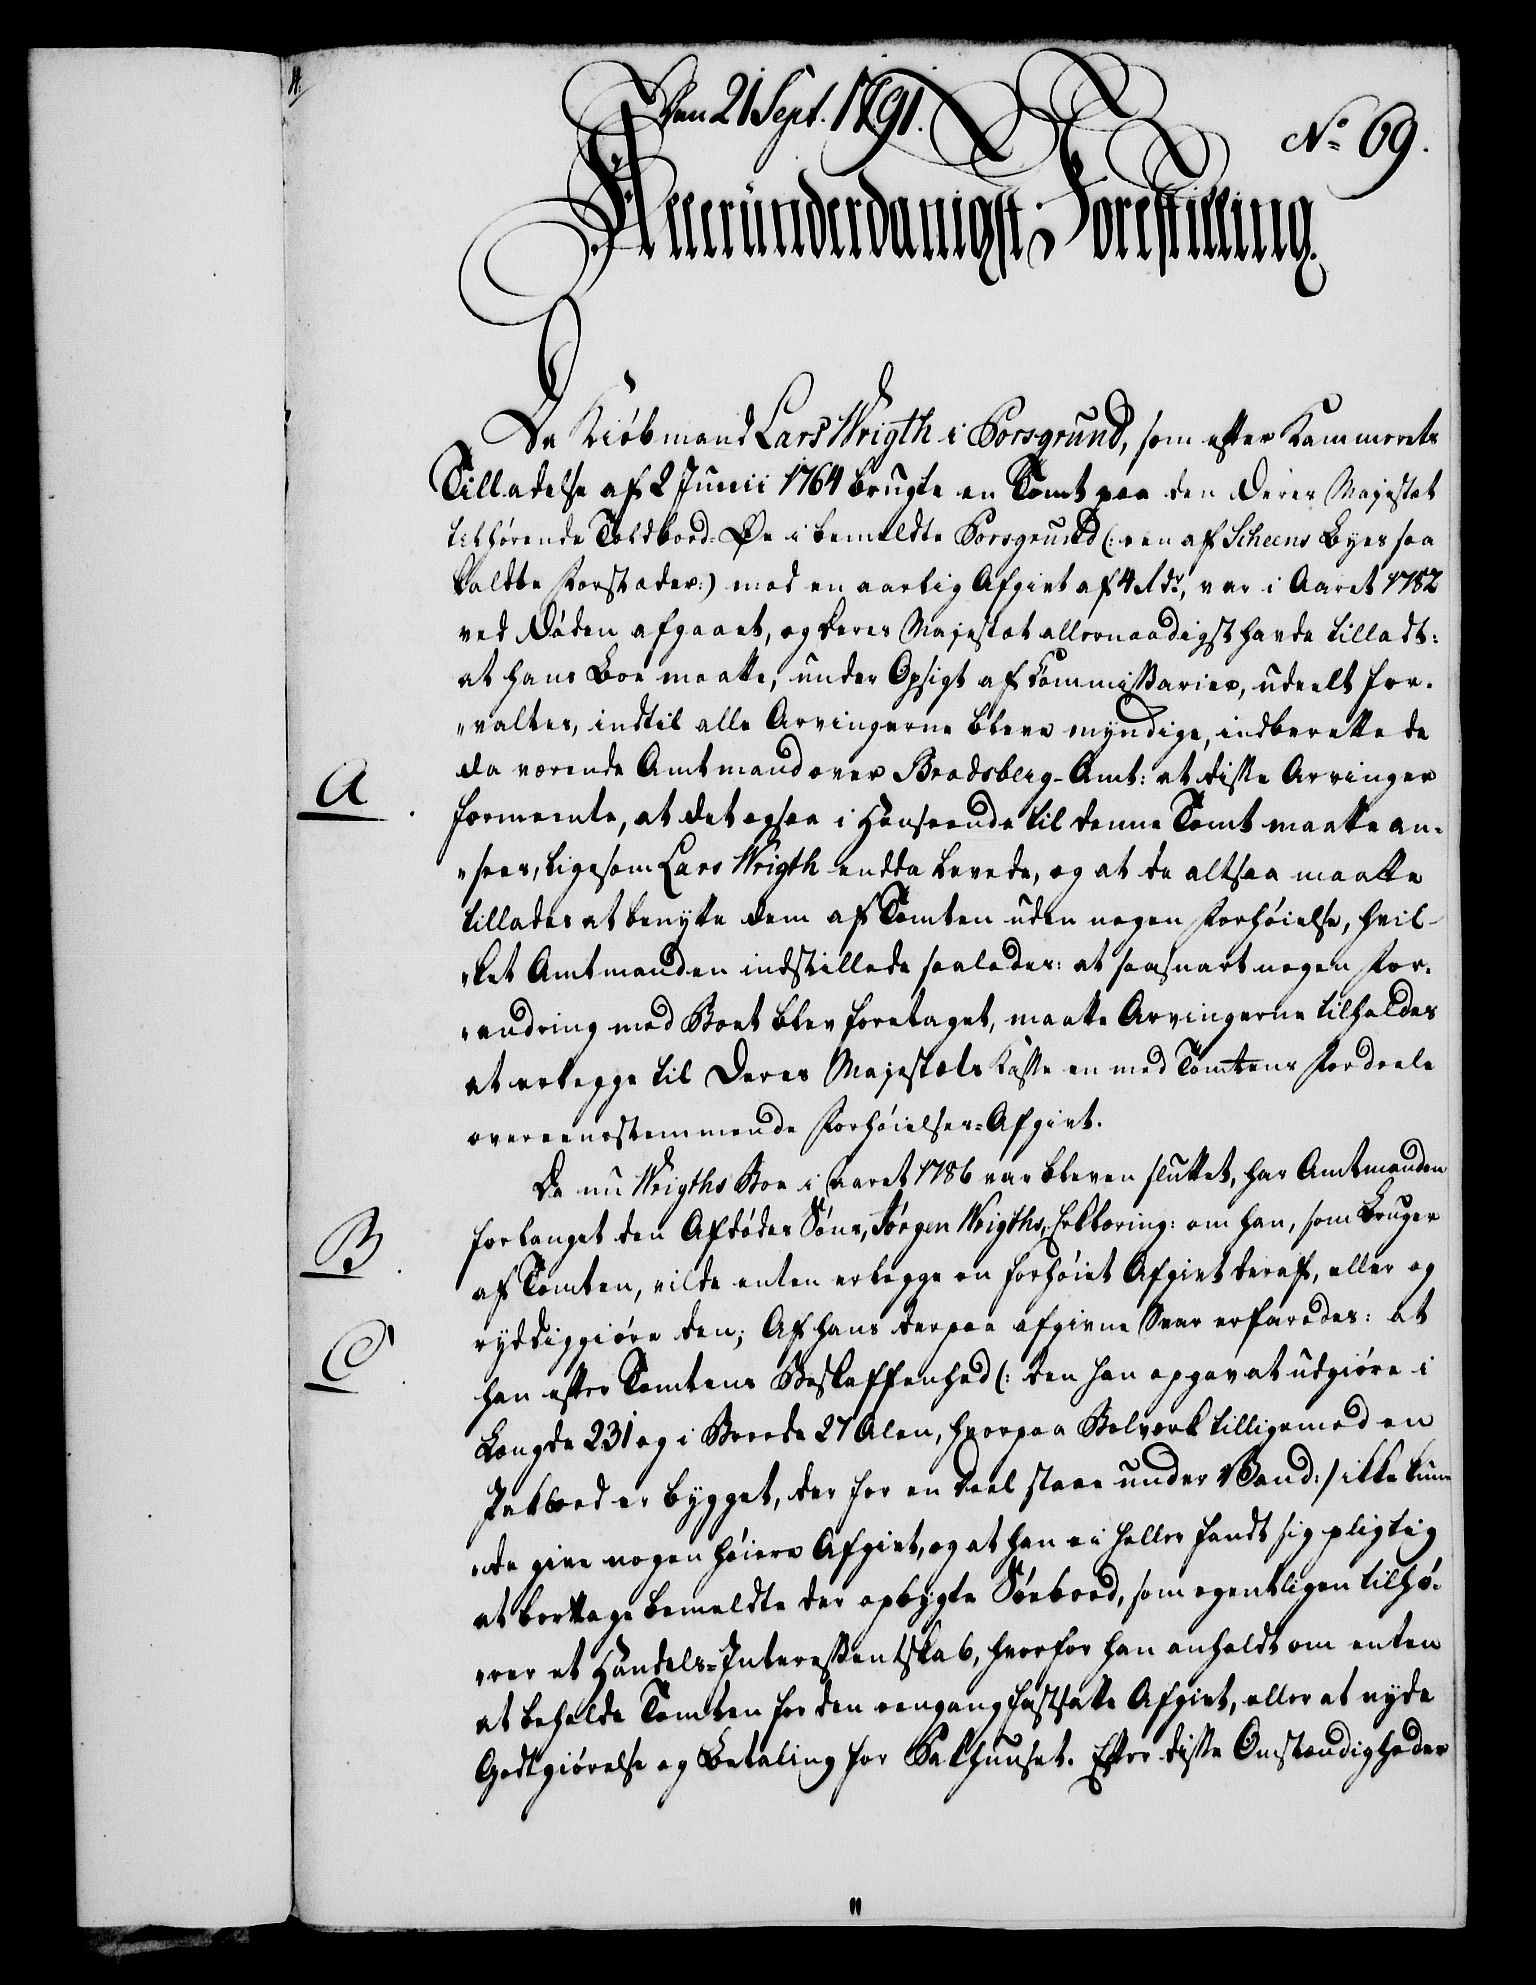 Den 21 Sept. 1791.
No 69.
Allerunderdanigst Forestilling.
Da Kiöbmand Lars Wrigth i Porsgrund, som efter Kammerets
Tilladelse af 2 Junii 1764 brugte en Tomt paa den Deres Majestæt
tilhørende Toldbord-Øe i bemeldte Porsgrund (: een af Scheens Byes saa
kaldte Forstæder:) med en aarlig Afgivt af 4 rdr, var i Aaret 1782
ved Døden afgaaet, og Deres Majestæt allernaadigst havde tilladt:
at hans Boe maatte, under Opsigt af Commissarier, udeelt for-
"valtes, indtil alle Arvingerne bleve myndige, indberettede
da værende Amtmand over Bradsberg-Amt: at disse Arvinger
A
formeente, at det ogsaa i Henseende til denne Tomt maatte an-
"sees, ligesom Lars Wrigth endda levede, og at de altsaa maatte
tillades at benytte dem af Tomten uden nogen Forhøielse, hvil-
"ket Amtmanden indstillede saaledes: at saasnart nogen For-
"andring med Boet blev foretaget, maatte Arvingerne tilholdes
at erlegge til Deres Majestæts Kasse en med Tomtens Fordeele
overeensstemmende Forhøielses-Afgivt.
Da nu Wrigths Boe i Aaret 1786 var bleven sluttet, har Amtmanden
B
forlanget den Afdødes Søns, Jørgen Wrigths, Erklæring: om han, som Bruger
af Tomten, vilde enten erlegge en forhøiet Afgivt deraf, eller og
C
ryddiggiøre den; Af hans derpaa afgivne Svar erfaredes: at
han efter Tomtens Beskaffenhed (: den han opgav at udgiøre i
Længde 231 og i Breede 27 Alen, hvorpaa Bolverk tilligemed en
Søeboed er bygget, der for en Deel staae under Vand:) ikke kun-
"de give nogen høiere Afgivt, og at han ei heller fandt sig pligtig
at borttage bemeldte der opbygte Søeboed, som egentligen tilhø-
"rer et Handels-Interessentskab, hvorfor han anholdt om enten
at beholde Tomten for den eengang fastsatte Afgivt, eller at nyde
Godtgiørelse og Betaling for Pakhuuset. Efter disse Omstændigheder
"